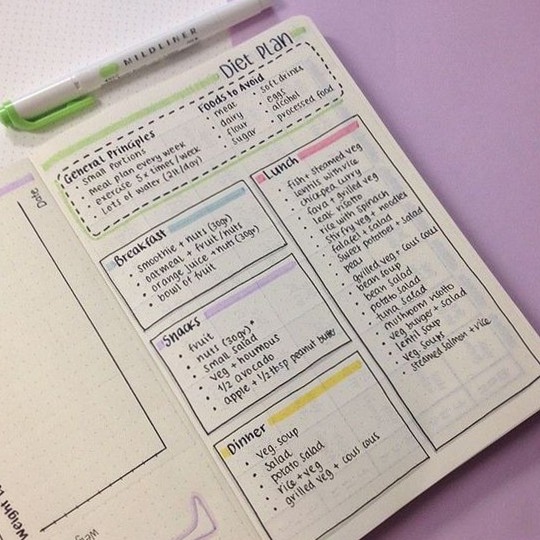 MILDLINER
Diet Plan
General Principles
• small portions
• meal plan every week
• exercise 5x times/week
• Lots of water (2lt/day)
Foods to Avoid
• meat
• dairy
• flour
• sugar
• soft drinks
• eggs
• alcohol
• processed food
Breakfast
• smoothie + nuts (30gr)
• oatmeal + fruit/nuts
• orange juice + nuts (30gr)
• bowl of fruit
Snacks
• fruit
• nuts (30gr)
• small salad
• veg + houmous
• 1/2 avocado
• apple + 1/2 tbsp peanut butter
Dinner
• veg. soup
• salad
• potato salad
• rice + veg
• grilled veg + cous cous
Lunch
• fish + steamed veg
• lentils with rice
• chickpea curry
• fava + grilled veg
• risotto
• rice with spinach
• stir fry veg + noodles
• falafel + salad
• sweet potatoes + salad
• peas
• grilled veg + cous cous
• bean soup
• bean salad
• potato salad
• tuna salad
• mushroom risotto
• veg burger + salad
• lentil soup
• veg. soups
• steamed salmon + rice
Date
Weight